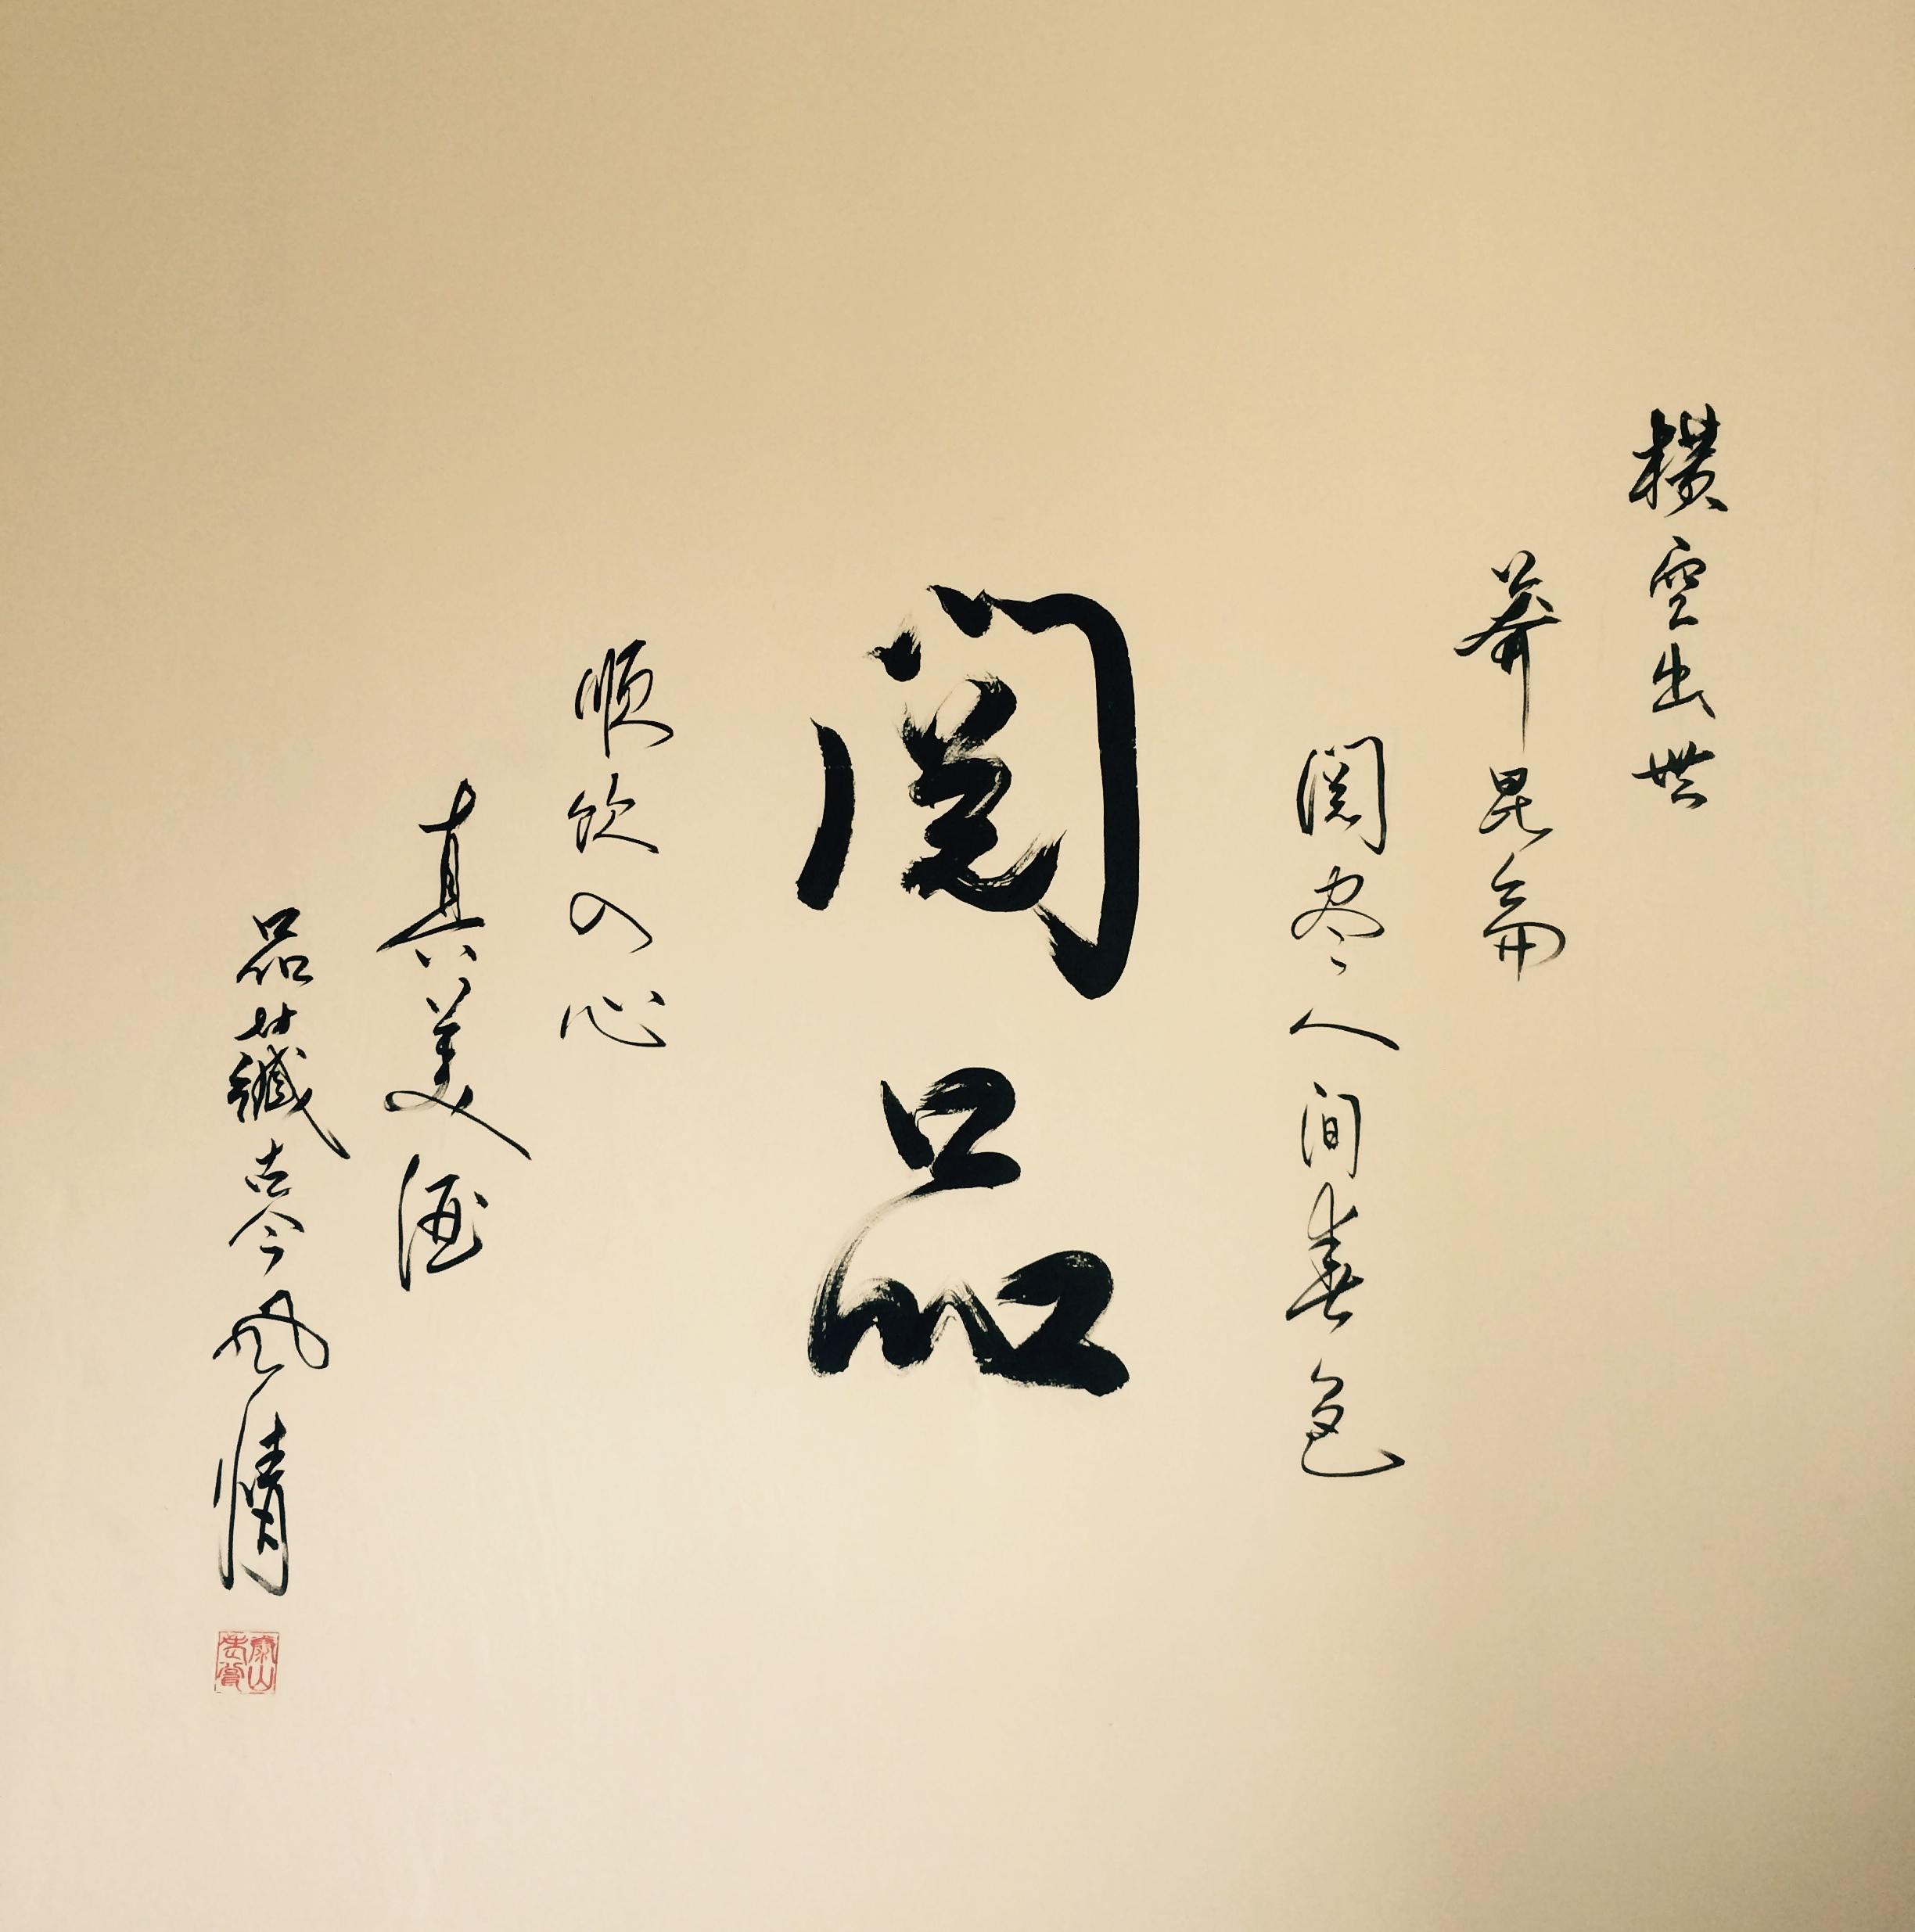 横空出世
莽昆仑
阅尽人间春色
阅品
顺饮入心
真美酒
品藏古今风情
泰山